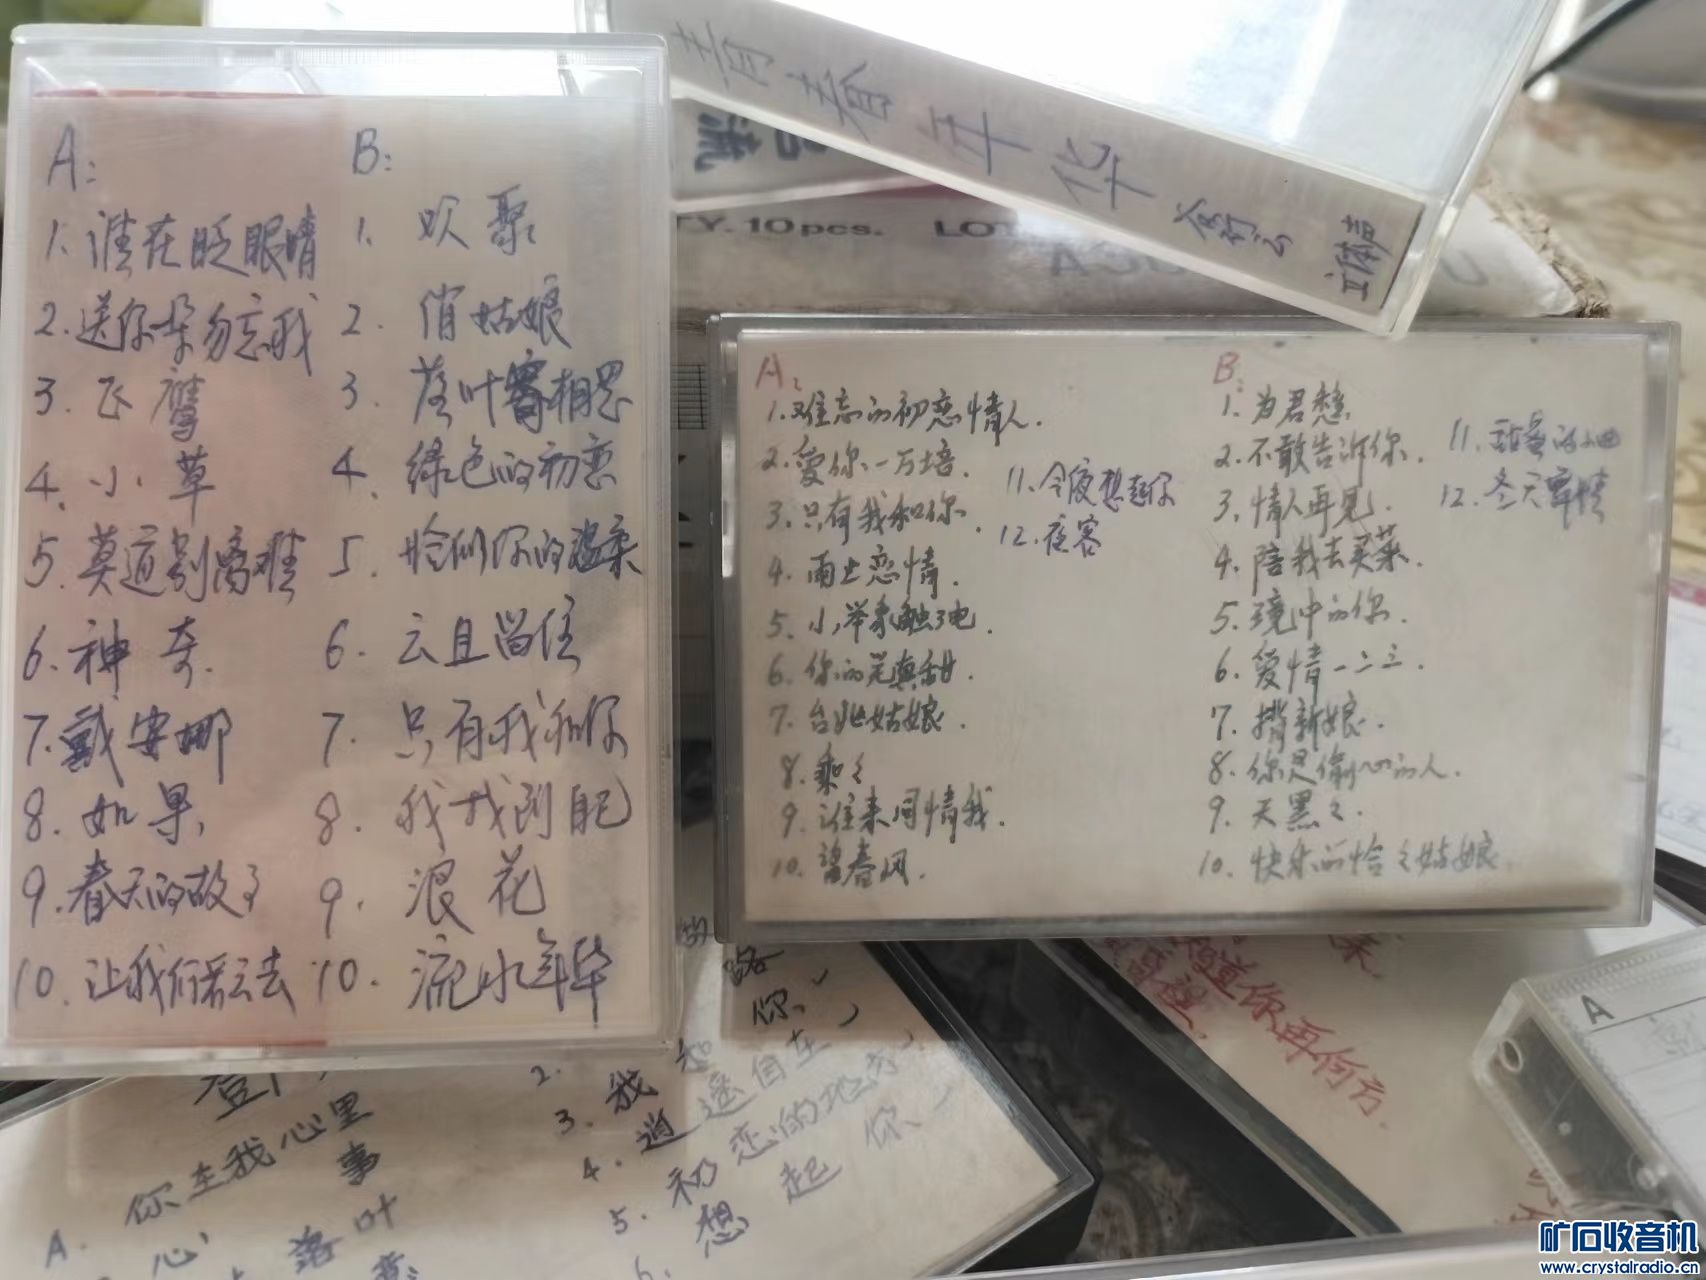 A:
1. 谁在眨眼睛
2. 送你朵勿忘我
3. 飞鹰
4. 小草
5. 莫道别离难
6. 神奇
7. 戴安娜
8. 如果
9. 春天的故事
10. 让我们看云去
B:
1. 欢聚
2. 俏姑娘
3. 落叶寄相思
4. 绿色的初恋
5. 恰似你的温柔
6. 云且留住
7. 只有我和你
8. 我找到自己
9. 浪花
10. 流水年华
青春年华
立体声
Y. 10pcs. LOT
A:
1. 难忘的初恋情人.
2. 爱你一万倍.
3. 只有我和你.
4. 雨中恋情.
5. 小举来触了电.
6. 你的笑真甜.
7. 台北姑娘.
8. 乖々
9. 谁来同情我.
10. 望春风.
11. 今夜想起你
12. 夜客
B:
1. 为君愁
2. 不敢告诉你.
3. 情人再见.
4. 陪我去买菜.
5. 境中的你.
6. 爱情一二三.
7. 揹新娘.
8. 你是偷心的人.
9. 天黑々.
10. 快乐的恰々姑娘
11. 甜蜜的小雨
12. 冬天零情
你在我心里
事
落叶
A.
心
路
你、
2.
3. 我
4. 逍遥自在
5. 初恋的地方
6. 想起你
道你再何方.
A
矿石收音机
www.crystalradio.cn